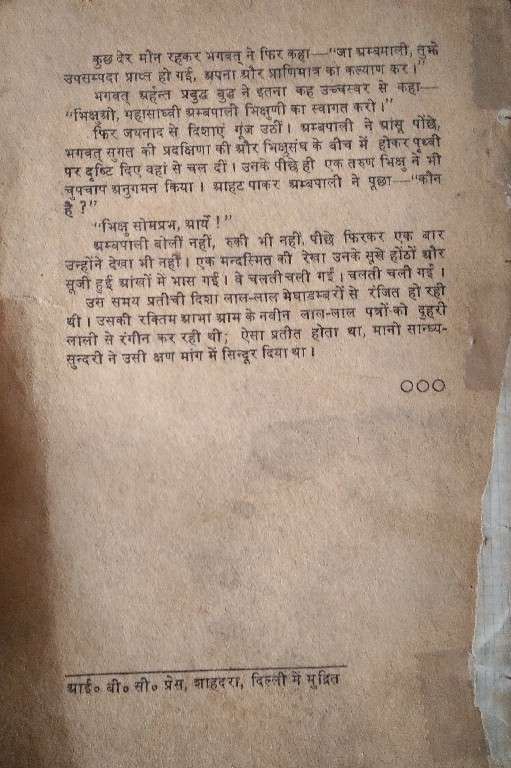 कुछ देर मौन रहकर भगवत् ने फिर कहा—“जा अम्बपाली, तुझे
उपसम्पदा प्राप्त हो गई, अपना और प्राणिमात्र का कल्याण कर।”
भगवत् अर्हन्त प्रबुद्ध बुद्ध ने इतना कह उच्चस्वर से कहा—
“भिक्षुओ, महासाध्वी अम्बपाली भिक्षुणी का स्वागत करो।”
फिर जयनाद से दिशाएं गूंज उठीं। अम्बपाली ने आंसू पोंछे,
भगवत् सुगत की प्रदक्षिणा की और भिक्षुसंघ के बीच में होकर पृथ्वी
पर दृष्टि दिए वहां से चल दीं। उनके पीछे ही एक तरुण भिक्षु ने भी
चुपचाप अनुगमन किया। आहट पाकर अम्बपाली ने पूछा—“कौन
है?”
“भिक्षु सोमप्रभ, आर्ये!”
अम्बपाली बोलीं नहीं, रुकी भी नहीं, पीछे फिरकर एक बार
उन्होंने देखा भी नहीं। एक मन्दस्मित की रेखा उनके सूखे होंठों और
सूजी हुई आंखों में भास गई। वे चलती चली गईं। चलती चली गईं।
उस समय प्रतीची दिशा लाल-लाल मेघाडम्बरों से रंजित हो रही
थी। उसकी रक्तिम आभा आम के नवीन लाल-लाल पत्रों को दुहरी
लाली से रंगीन कर रही थी; ऐसा प्रतीत होता था, मानो सान्ध्य-
सुन्दरी ने उसी क्षण मांग में सिन्दूर दिया था।
○○○
आई॰ बी॰ सी॰ प्रेस, शाहदरा, दिल्ली में मुद्रित